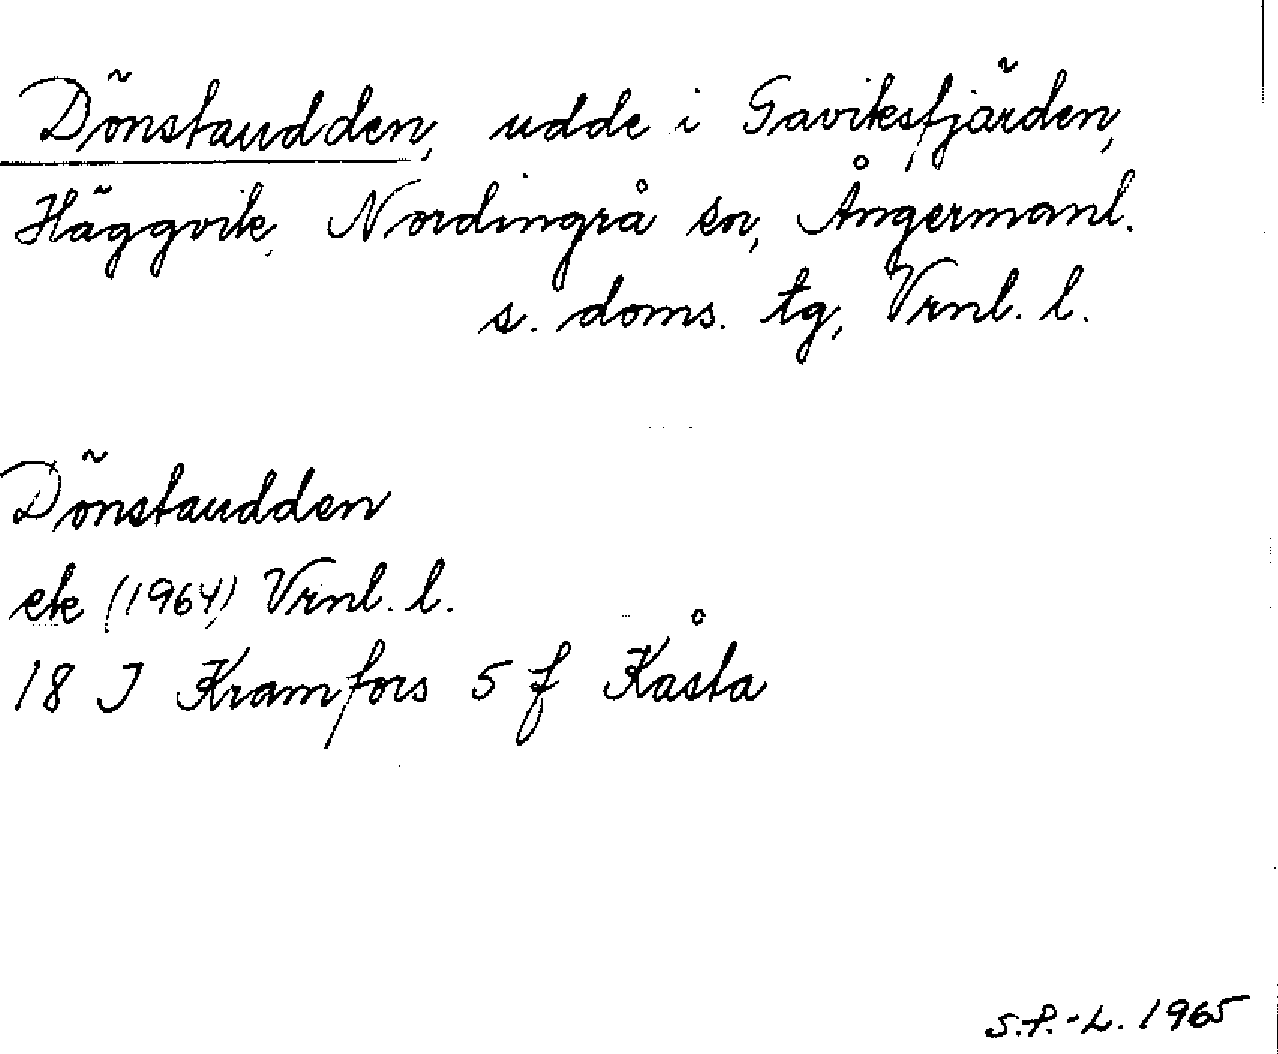 Dönstaudden, udde i Gaviksfjärden,
Häggvik, Nordingrå sn, Ångermanl.
s. doms. tg, Vrnl. l.
Dönstaudden
ek (1964) Vrnl. l.
18 J Kramfors 5 f Kåsta
S.P.-L. 1965